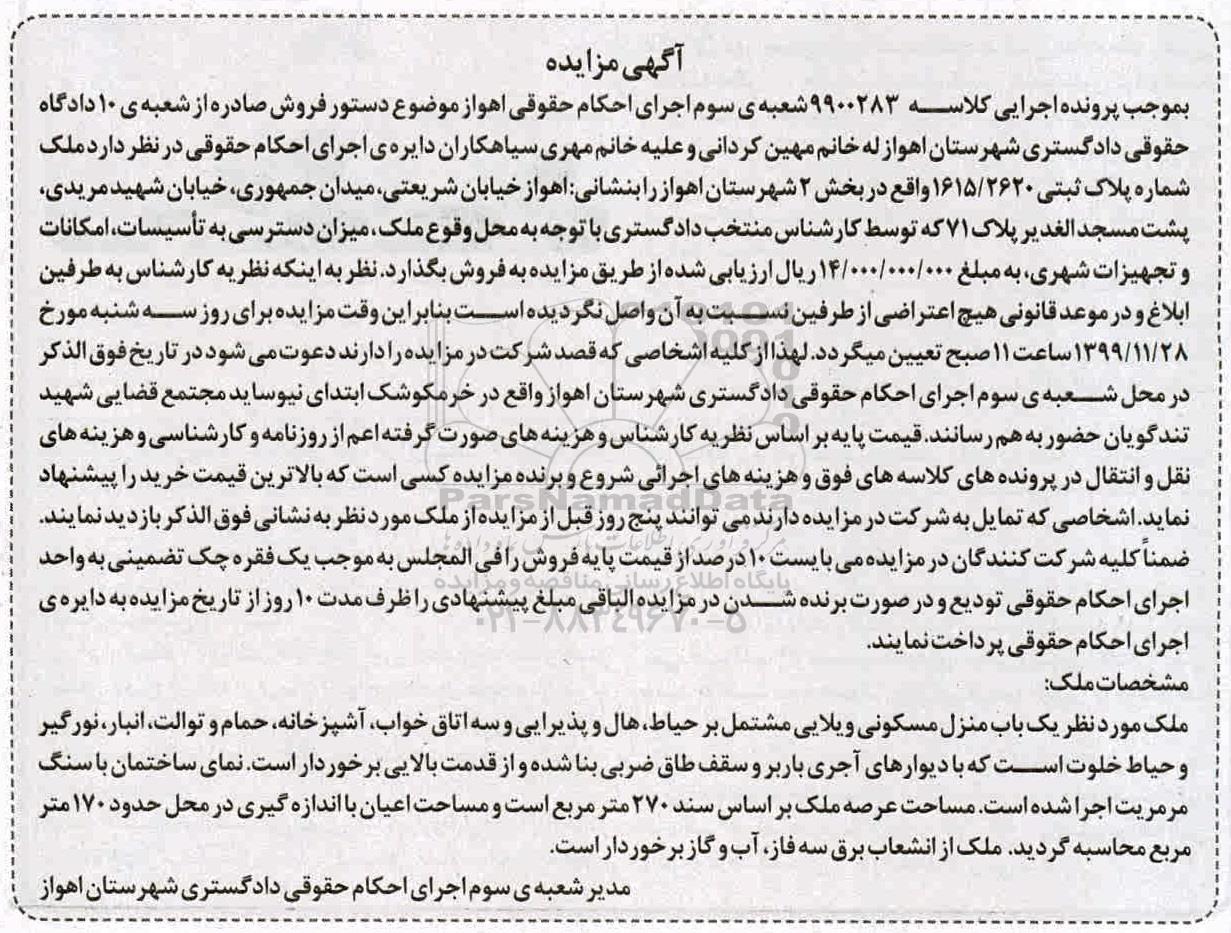 آگهی مزایده
بموجب پرونده اجرایی کلاسه ۹۹۰۰۲۸۳ شعبه ی سوم اجرای احکام حقوقی اهواز موضوع دستور فروش صادره از شعبه ی ۱۰ دادگاه
حقوقی دادگستری شهرستان اهواز له خانم مهین کردانی و علیه خانم مهری سیاهکاران دایره ی اجرای احکام حقوقی در نظر دارد ملک
شماره پلاک ثبتی ۱۶۱۵/۲۶۲۰ واقع در بخش ۲ شهرستان اهواز را بنشانی: اهواز خیابان شریعتی، میدان جمهوری، خیابان شهید مریدی،
پشت مسجد الغدیر پلاک ۷۱ که توسط کارشناس منتخب دادگستری با توجه به محل وقوع ملک، میزان دسترسی به تأسیسات، امکانات
و تجهیزات شهری، به مبلغ ۱۴/۰۰۰/۰۰۰/۰۰۰ ریال ارزیابی شده از طریق مزایده به فروش بگذارد. نظر به اینکه نظریه کارشناس به طرفین
ابلاغ و در موعد قانونی هیچ اعتراضی از طرفین نسبت به آن واصل نگردیده است بنابراین وقت مزایده برای روز سه شنبه مورخ
۱۳۹۹/۱۱/۲۸ ساعت ۱۱ صبح تعیین میگردد. لهذا از کلیه اشخاصی که قصد شرکت در مزایده را دارند دعوت می شود در تاریخ فوق الذکر
در محل شعبه ی سوم اجرای احکام حقوقی دادگستری شهرستان اهواز واقع در خرمکوشک ابتدای نیوساید مجتمع قضایی شهید
تندگویان حضور به هم رسانند. قیمت پایه بر اساس نظریه کارشناس و هزینه های صورت گرفته اعم از روزنامه و کارشناسی و هزینه های
نقل و انتقال در پرونده های کلاسه های فوق و هزینه های اجرائی شروع و برنده مزایده کسی است که بالاترین قیمت خرید را پیشنهاد
نماید. اشخاصی که تمایل به شرکت در مزایده دارند می توانند پنج روز قبل از مزایده از ملک مورد نظر به نشانی فوق الذکر بازدید نمایند.
ضمناً کلیه شرکت کنندگان در مزایده می بایست ۱۰ درصد از قیمت پایه فروش را فی المجلس به موجب یک فقره چک تضمینی به واحد
اجرای احکام حقوقی تودیع و در صورت برنده شدن در مزایده الباقی مبلغ پیشنهادی را ظرف مدت ۱۰ روز از تاریخ مزایده به دایره ی
اجرای احکام حقوقی پرداخت نمایند.
مشخصات ملک:
ملک مورد نظر یک باب منزل مسکونی ویلایی مشتمل بر حیاط، هال و پذیرایی و سه اتاق خواب، آشپزخانه، حمام و توالت، انبار، نورگیر
و حیاط خلوت است که با دیوارهای آجری باربر و سقف طاق ضربی بنا شده و از قدمت بالایی برخوردار است. نمای ساختمان با سنگ
مرمریت اجرا شده است. مساحت عرصه ملک بر اساس سند ۲۷۰ متر مربع است و مساحت اعیان با اندازه گیری در محل حدود ۱۷۰ متر
مربع محاسبه گردید. ملک از انشعاب برق سه فاز، آب و گاز برخوردار است.
مدیر شعبه ی سوم اجرای احکام حقوقی دادگستری شهرستان اهواز
ParsNamadData
پایگاه اطلاع رسانی مناقصه و مزایده
۰۲۱-۸۸۳۴۹۶۷۰-۵